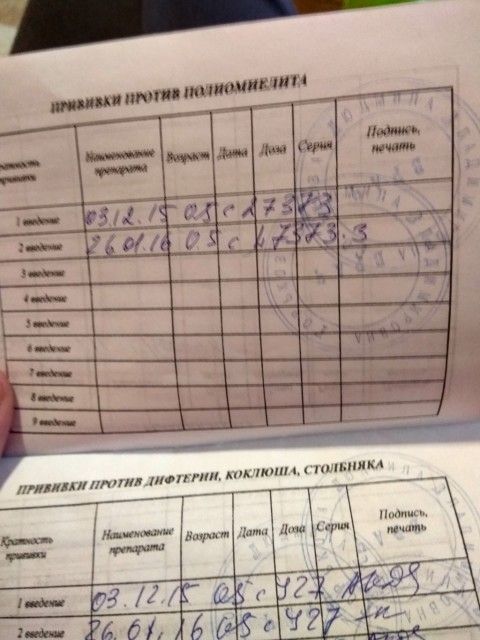 ПРИВИВКИ ПРОТИВ ПОЛИОМИЕЛИТА
Кратность прививки Наименование препарата Возраст Дата Доза Серия Подпись, печать
1 введение 03.12.15 05 с
2 введение 26.01.16 05 с
3 введение
4 введение
5 введение
6 введение
7 введение
8 введение
9 введение
ПРИВИВКИ ПРОТИВ ДИФТЕРИИ, КОКЛЮША, СТОЛБНЯКА
Кратность прививки Наименование препарата Возраст Дата Доза Серия Подпись, печать
1 введение 03.12.15 05 с
2 введение 26.01.16 05 с